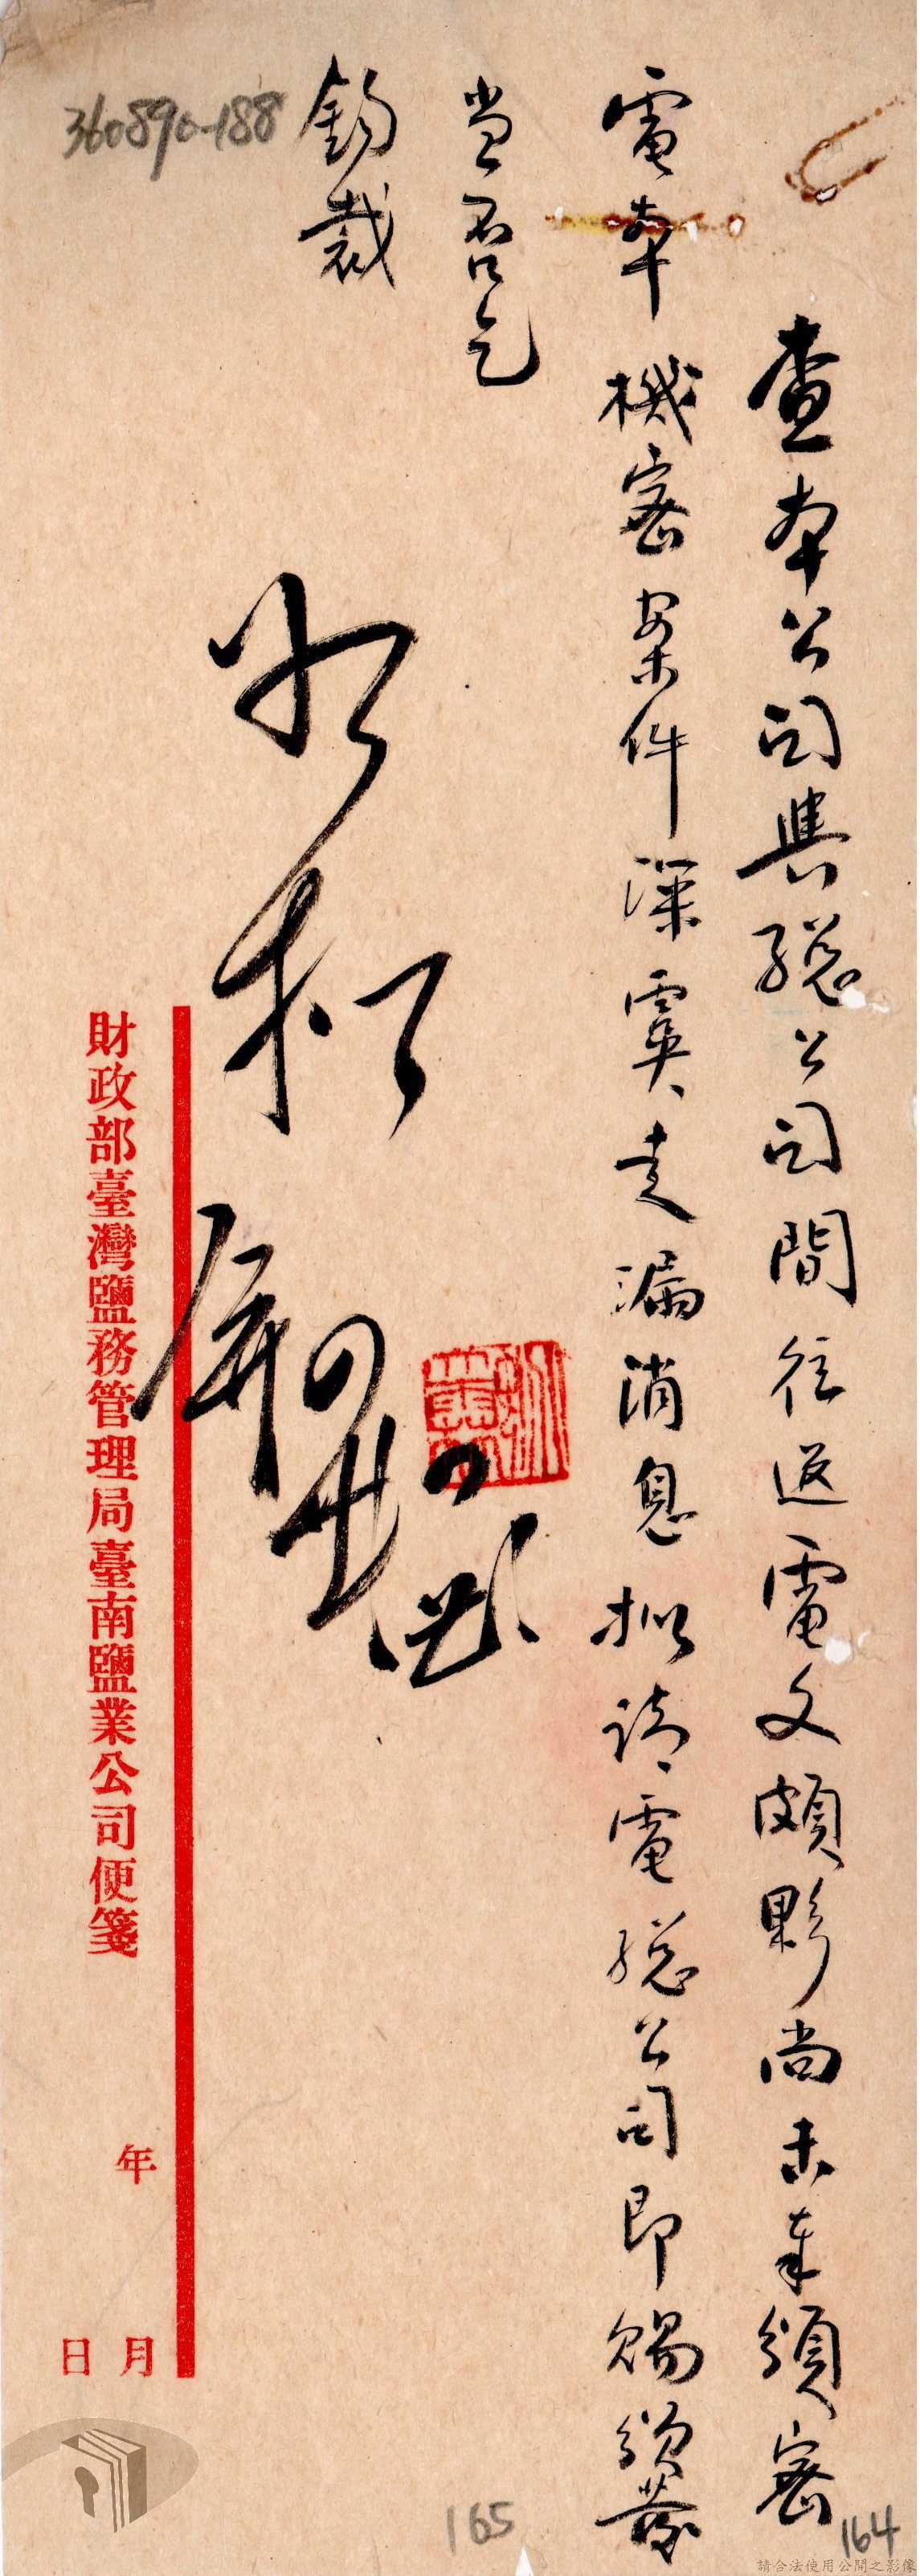 查本公司與總公司間往返電文頗夥尚未奉頒密
電本機密案件深虞走漏消息擬請電總公司即賜頒發
當否乞
鈞裁
如擬
財政部臺灣鹽務管理局臺南鹽業公司便箋
年
月
日
360890-188
165
164
請合法使用公開之影像